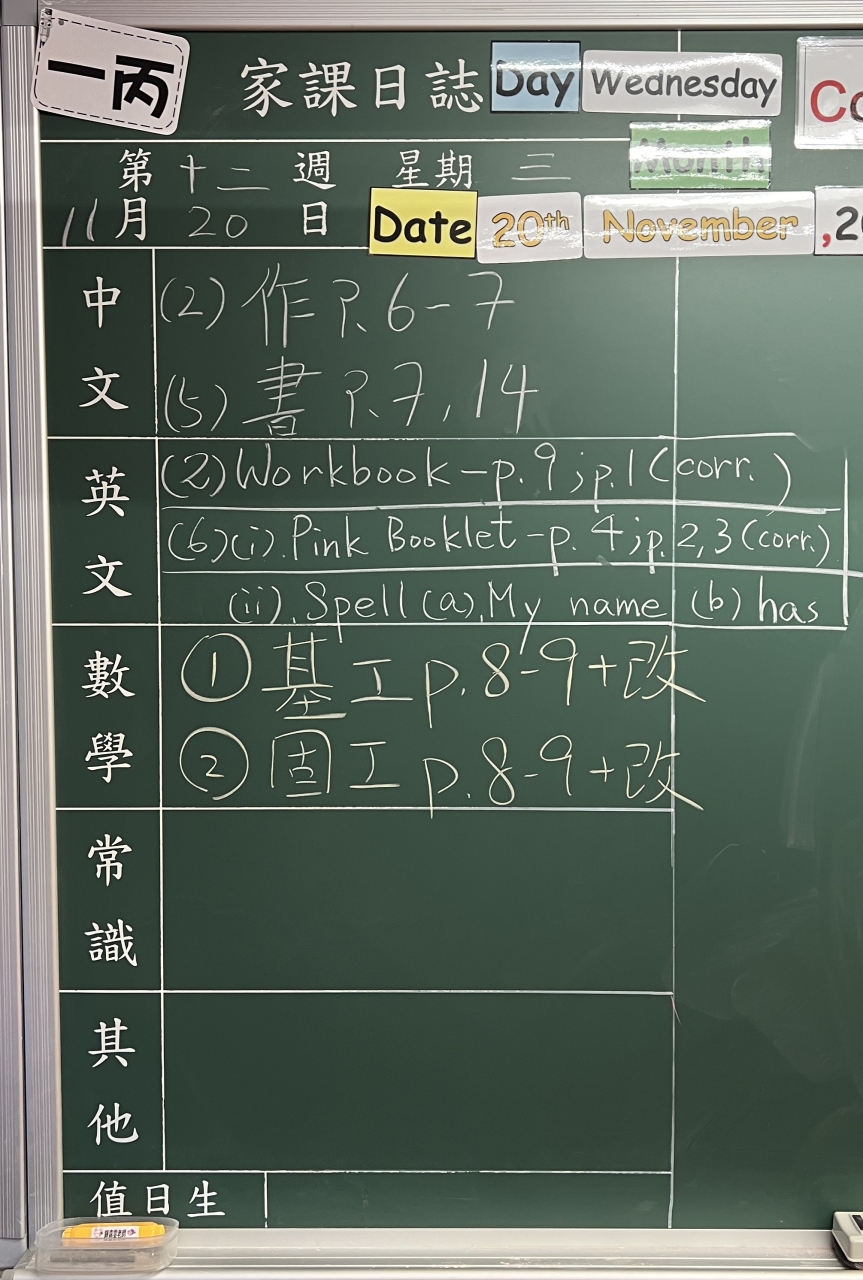 一丙
家課日誌 Day Wednesday
Month
第十二週 星期三
11月20日 Date 20th November ,2
中文
(2) 作 P.6-7
(5) 書 P.7,14
英文
(2) Workbook-p.9;p.1(corr.)
(6)(i).Pink Booklet-p.4;p.2,3(corr.)
(ii).Spell(a).My name (b) has
數學
① 基工 p.8-9+改
② 固工 p.8-9+改
常識
其他
值日生